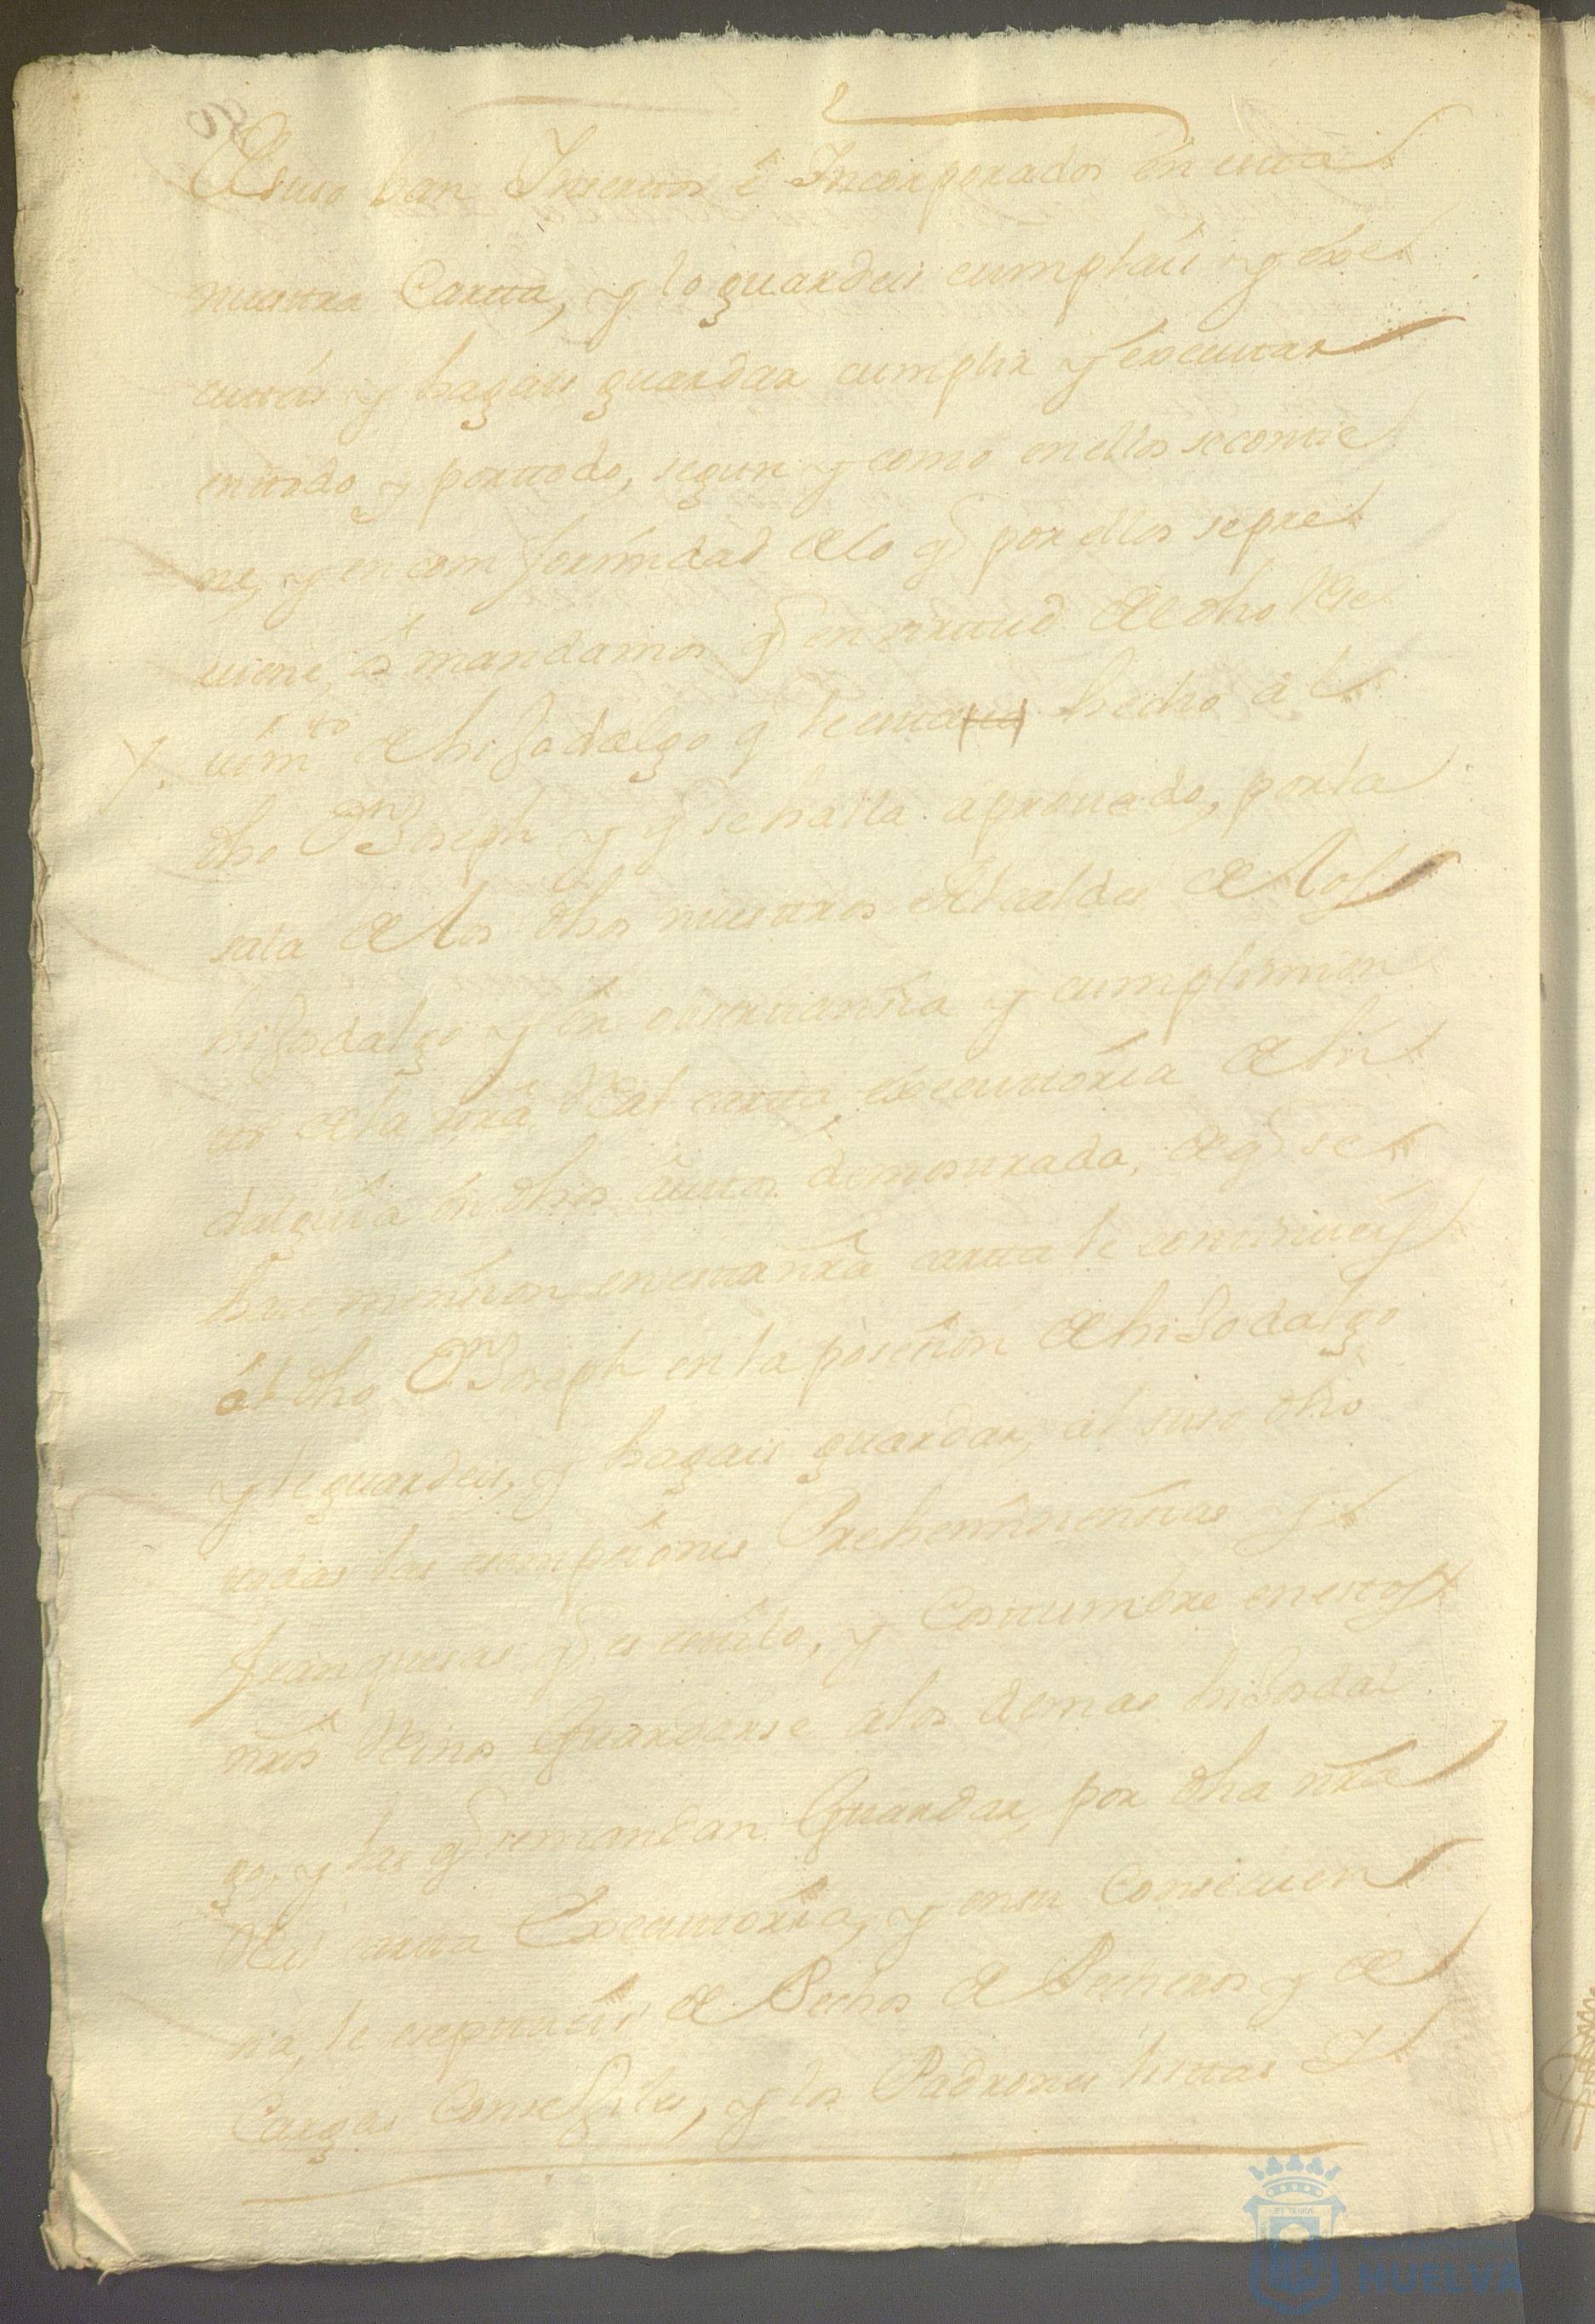 Desuso ban Insertos é Incorporados en esta
nuestra Carta, y lo guardeis cumplais y exe
cuteis y hagais guardar cumplir y executar
entodo y portodo, segun y como en ellos se contie
ne, y en comformidad delo q̃ por ellos se pre
viene, os mandamos q̃ en virtud del dho Reci
uim.to de hijodalgo q̃ le esta hecho al
dho Dn Joseph y q̃ se halla aprouado, por la
sala de los dhos nuestros Alcaldes de los
hijosdalgo y en observancia y cumplimien
to dela nrã Real carta executoria de hi
dalguia en dhos autos demostrada, de q̃ se
hace mencion en esta nrã carta le continueis
al dho Dn Joseph en la posecion de hijodalgo
y le guardeis, y hagais guardar, al suso dho
todas las esempciones Prehemiñencias y
franquesas q̃ es estilo, y Costumbre en estos
nrõs Rei̅nos Guardarse alos demas hijosdal
go, y las q̃ se mandan Guardar, por dha nrã
Real carta Executoria, y en su Consecuen
cia, le exeptueis de Pechos de Pecheros y de
Cargas Consejiles, y los Padrones listas Y
HUELVA